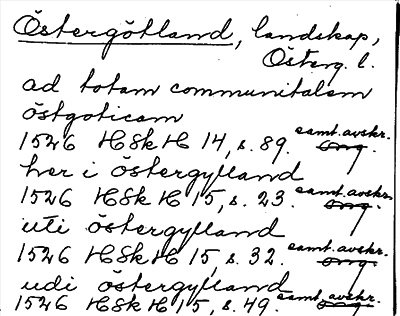 Östergötland, landskap,
Österg. l.
ad totam communitatem
östgoticam
1526 HSkH 14, s. 89. samt. avskr. orig.
her i östergylland
1526 HSkH 15, s. 23. samt. avskr. orig.
uti östergylland
1526 HSkH 15, s. 32. samt. avskr. orig.
udi östergylland
1526 HSkH 15, s. 49. samt. avskr. orig.